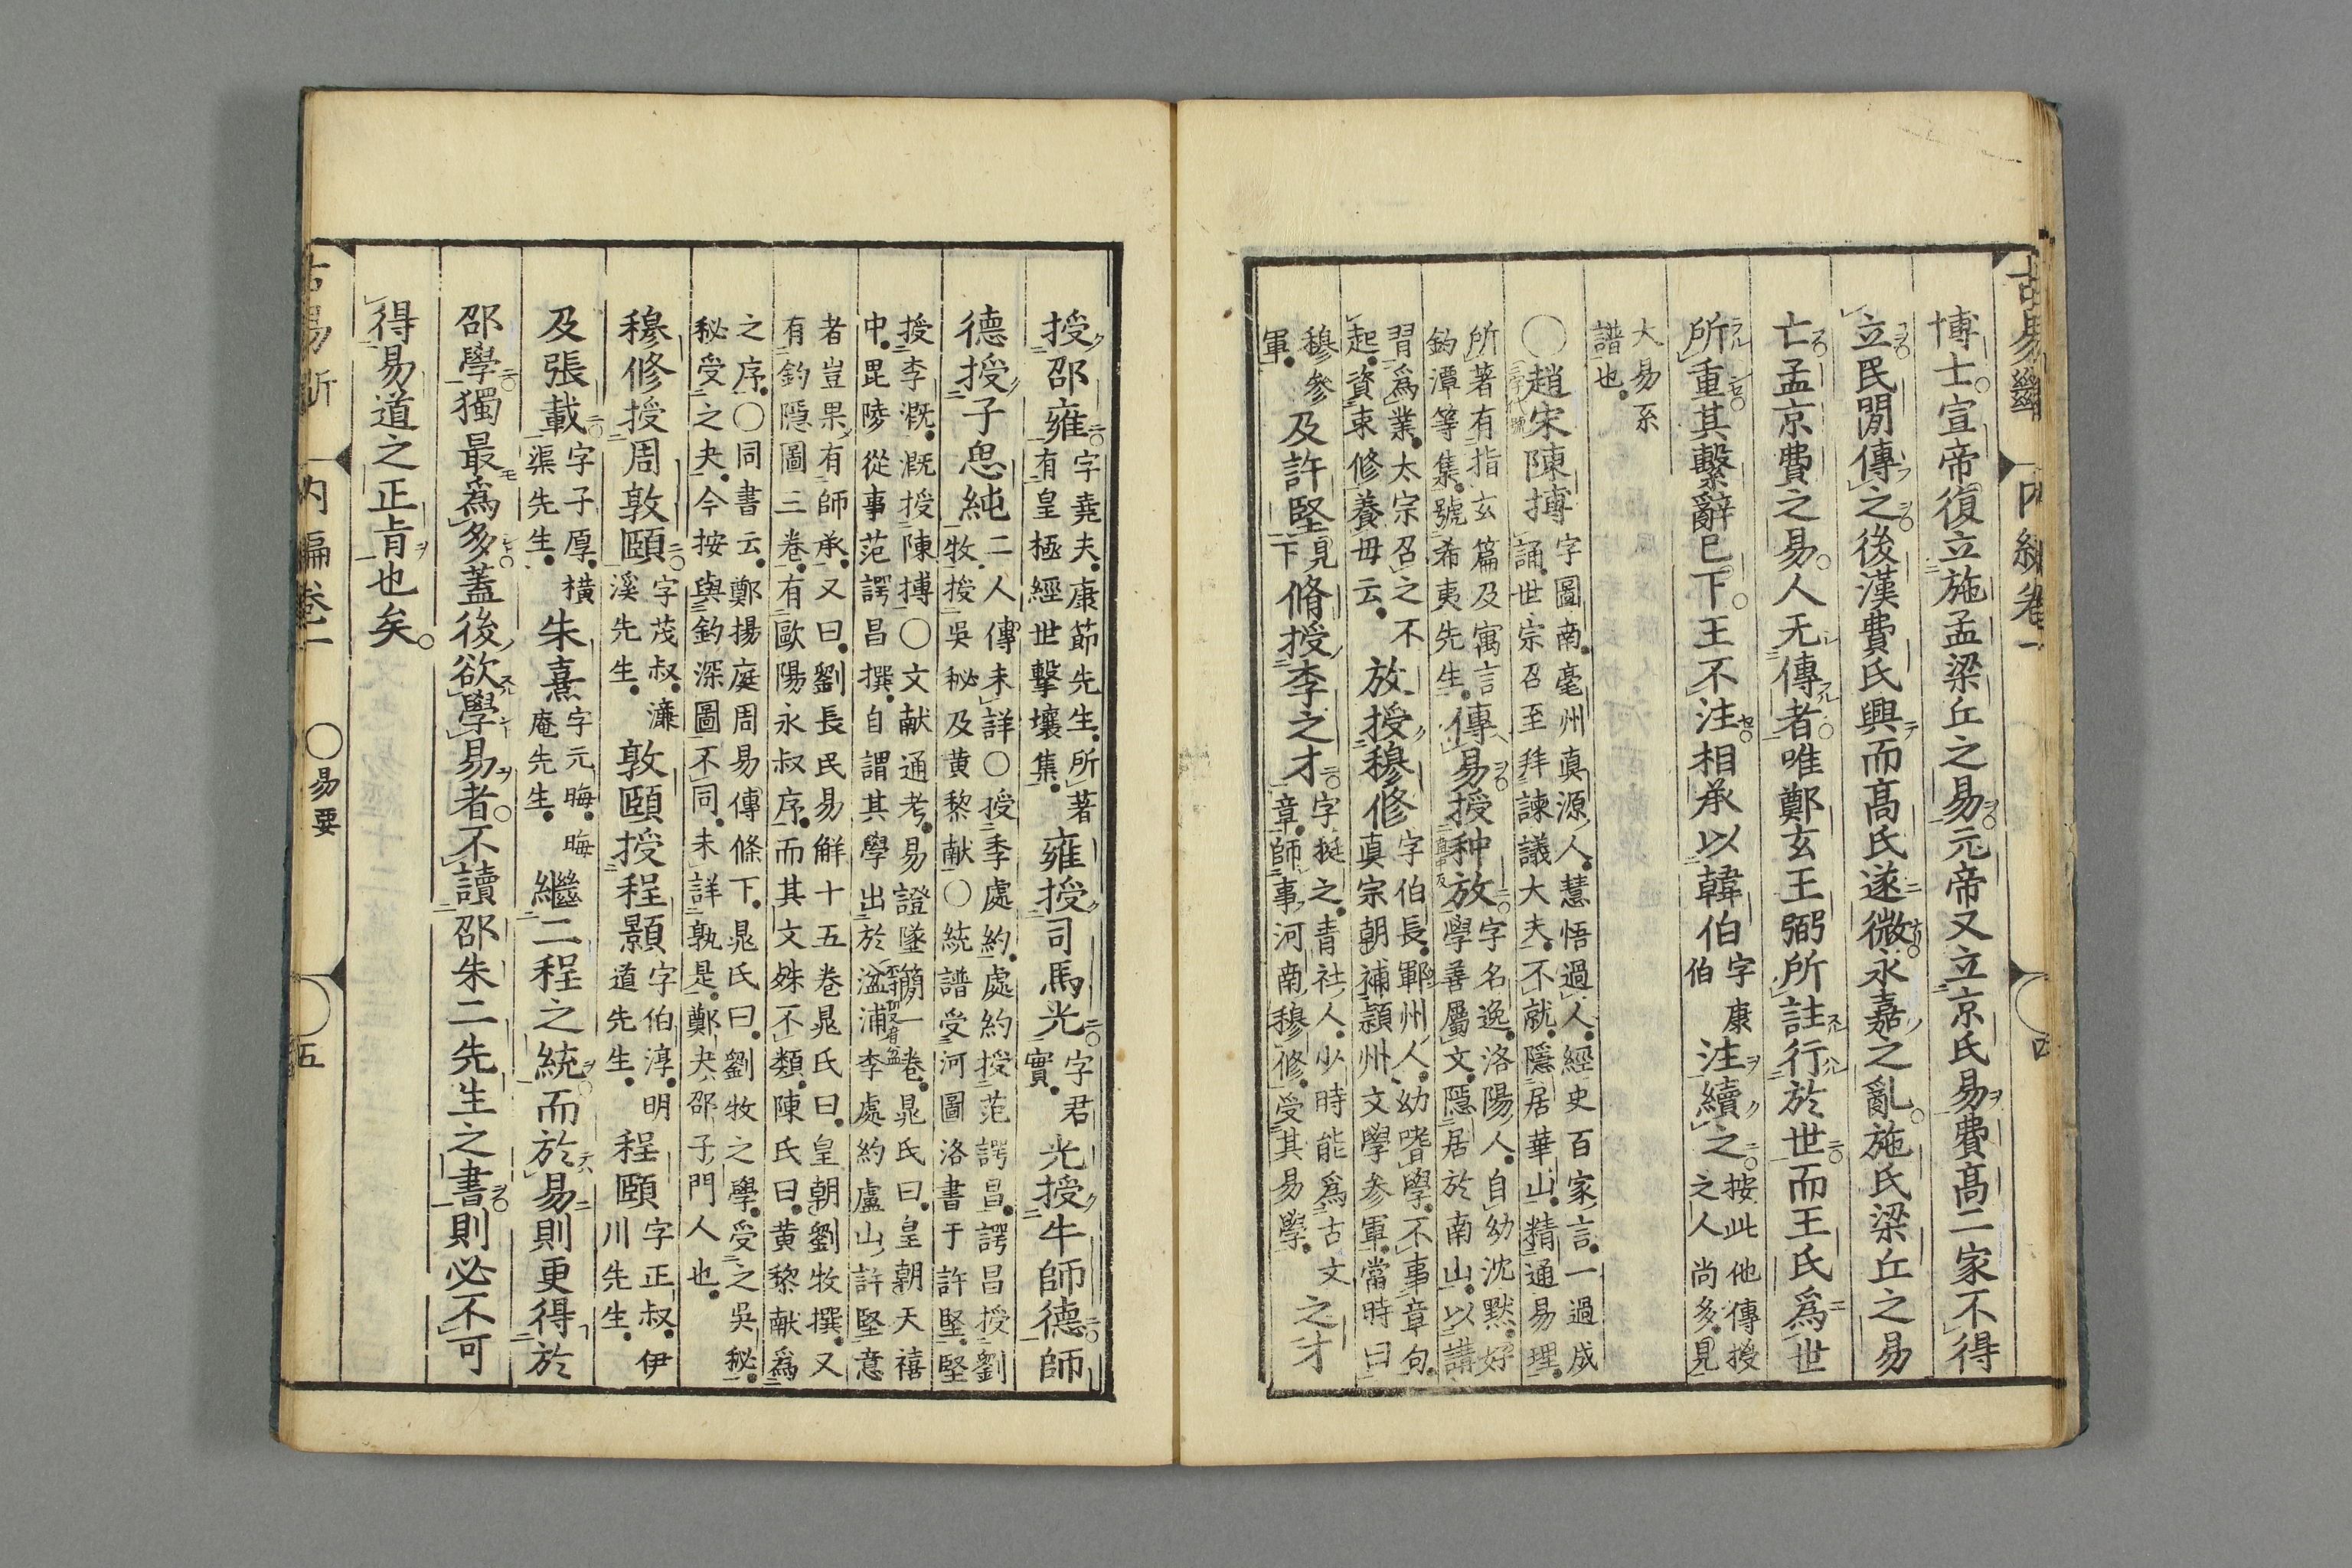 博士宣帝復立施孟梁丘之易元帝又立京氏易費高二家不得
立民間傳之後漢費氏興而高氏遂微永嘉之亂施氏梁丘之易
亡孟京費之易人无傳者唯鄭玄王弼所註行於世而王氏為世
所重其繫辭已下王不注相承以韓伯字康伯注續之按此他傳授之人尚多見
大易系譜也
〇趙宋陳摶字圖南亳州真源人慧悟過人經史百家言一過成誦世宗召至拜諫議大夫不就隱居華山精通易理
所著有指玄篇及寓言釣潭等集號希夷先生傳易授种放字名逸洛陽人自幼沈默好學善屬文隱居於南山以講
習為業太宗召之不起資束修養母云放授穆修字伯長鄆州人幼嗜學不事章句真宗朝補潁州文學參軍當時曰
穆參軍及許堅見下脩授李之才字挺之青社人少時能為古文章師事河南穆修受其易學之才
授邵雍字堯夫康節先生所著有皇極經世擊壤集雍授司馬光字君實光授牛師德師
德授子思純二人傳未詳〇授季處約處約授范諤昌諤昌授劉牧授吳秘及黄黎献〇統譜受河圖洛書于許堅堅
授李溉溉授陳摶〇文献通考易證墜簡一卷晁氏曰皇朝天禧中毘陵從事范諤昌撰自謂其學出於湓浦李處約盧山許堅意
者豈果有師承又曰劉長民易解十五卷晁氏曰皇朝劉牧撰又有釣隱圖三卷有歐陽永叔序而其文殊不類陳氏曰黄黎献為
之序〇同書云鄭揚庭周易傳條下晁氏曰劉牧之學受之吳秘秘受之夬今按與釣深圖不同未詳孰是鄭夬邵子門人也
穆修授周敦頤字茂叔濂溪先生敦頤授程顥字伯淳明道先生程頤字正叔伊川先生
及張載字子厚橫渠先生朱熹字元晦晦庵先生繼二程之統而於易則更得於
邵學獨最為多蓋後欲學易者不讀邵朱二先生之書則必不可
得易道之正肯也矣
内編卷一
〇易要
五